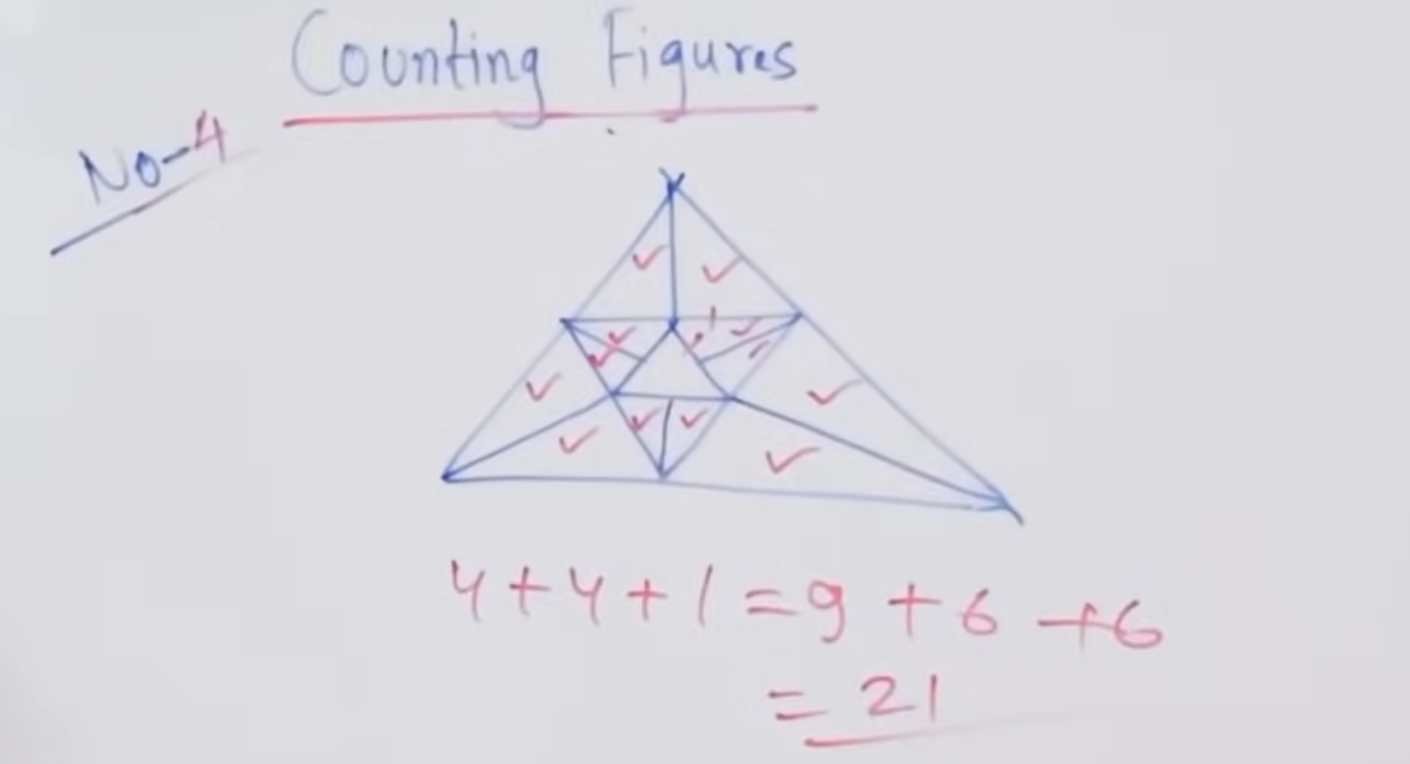 Counting Figures
No-4
4+4+1=9+6+6
=21